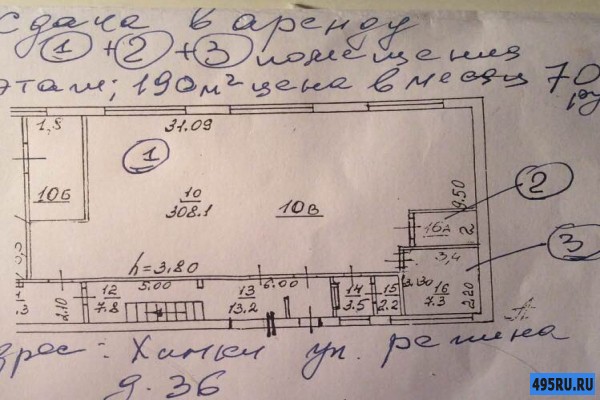 сдача в аренду
1 + 2 + 3 помещения
этаж; 190м² цена в месяц 70
ру
1,8
31.09
1
10Б
10
308.1
10В
9.50
2
16А
2
3
3,4
h=3.80
5.00
6.00
2.10
12
7.8
13
13.2
14
3.5
15
2.2
3.30
16
7.3
2.20
.3
дрес: Химки ул. репина
д. 36
495RU.RU